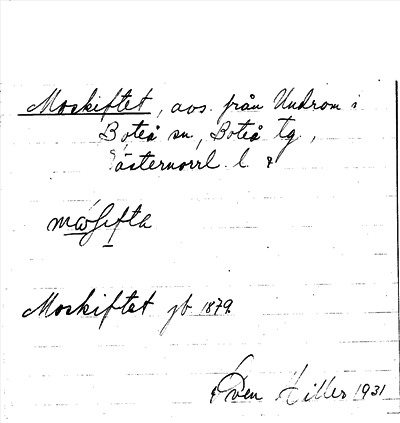 Moskiftet, avs. från Undrom i
Boteå sn, Boteå tg,
Västernorrl. l.
Moskiftet jb 1879
Sven Hiller 1931